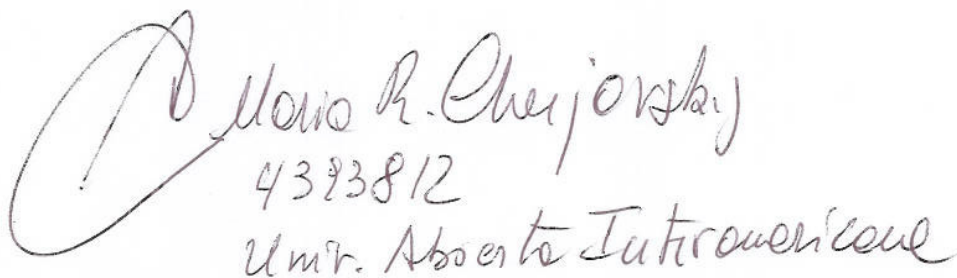 Mario R. Cherjovsky
4393812
Univ. Abierta Interamericana